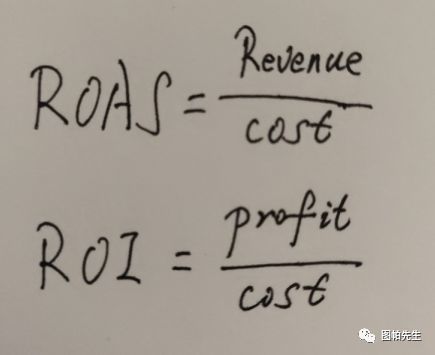 ROAS = Revenue / cost
ROI = profit / cost
图帕先生